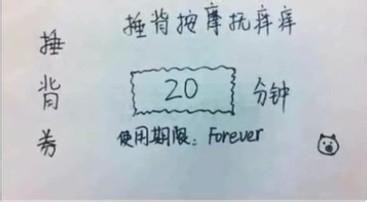 捶背券
捶背按摩抚痒痒
20 分钟
使用期限：Forever